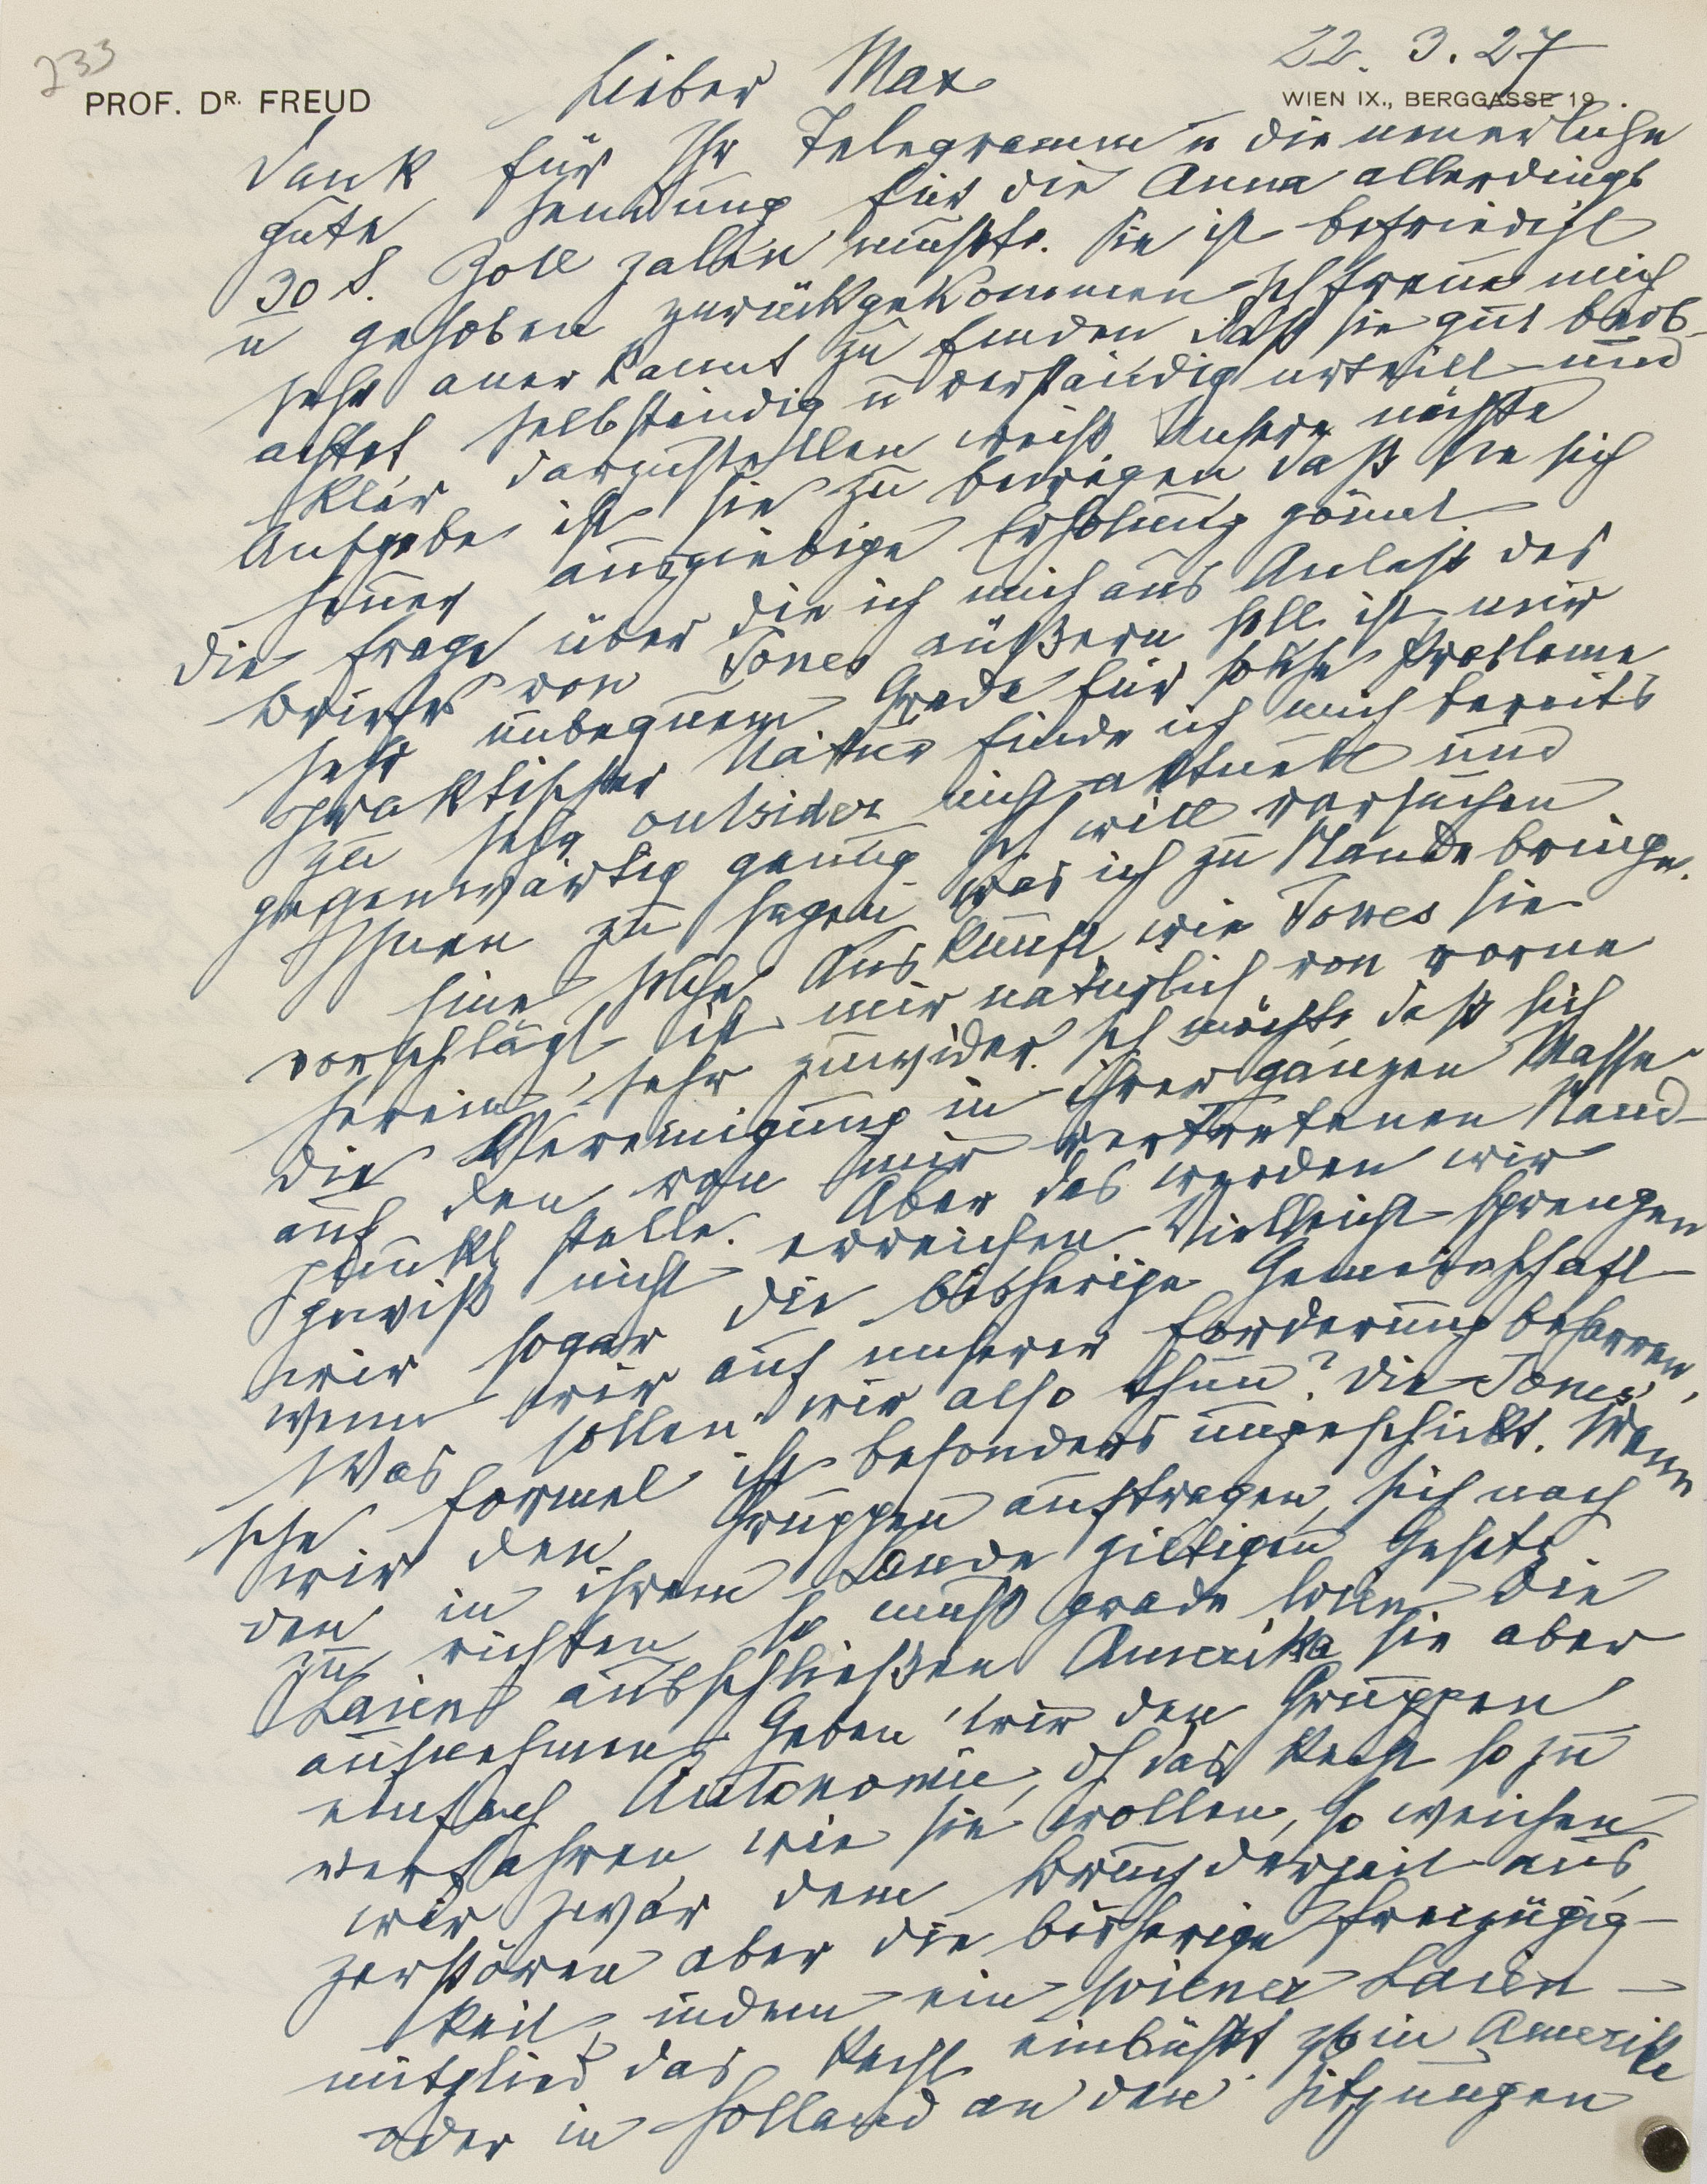 233
22. 3. 27
PROF. DR. FREUD
WIEN IX., BERGGASSE 19.
Lieber Max
Dank für Ihr Telegramm u die neuerliche
gute Sendung für die Anna allerdings
30 S. Zoll zalen mußte. Sie ist befriedigt
u gehoben zurückgekommen Ich freue mich
sehr anerkannt zu finden daß sie gut beob-
achtet selbständig u verständig urteilt und
klar darzustellen weiß Unsere nächste
Aufgabe ist sie zu bewegen daß sie sich
ausgiebige Erholung gönnt
Die Frage über die ich mich aus Anlaß des
Briefes von Jones äußern soll ist mir
sehr unbequem Grade für solche Probleme
praktischer Natur finde ich mich bereits
zu sehr outsider nicht aktuell und
gegenwärtig genug Ich will versuchen
Ihnen zu sagen was ich zu Stande bringe.
Eine solche Auskunft wie Jones sie
vorschlägt ist mir natürlich von vorne
herein sehr zuwider. Ich möchte, daß sich
die Vereinigung in ihrer ganzen Masse
auf den von mir vertretenen Stand-
punkt stelle. Aber das werden wir
gewiß nicht erreichen Vielleicht sprengen
wir sogar die bisherige Gemeinschaft
wenn wir auf unserer Forderung beharren,
Was sollen wir also thun? Die Jones'
sche Formel ist besonders ungeschickt. Wenn
wir den Gruppen auftragen, sich nach
den in ihrem Lande giltigen Gesetz
zu richten so muß grade Wien die
Laien ausschließen Amerika sie aber
aufnehmen. Geben wir den Gruppen
einfach Autonomie, dh das Recht so zu
verfahren wie sie wollen, so weichen
wir zwar dem Bruch derzeit aus,
zerstören aber die bisherige Freizügig-
keit, indem ein Wiener Laien-
mitglied das Recht einbüßt zb in Amerika
oder in Holland an den Sitzungen